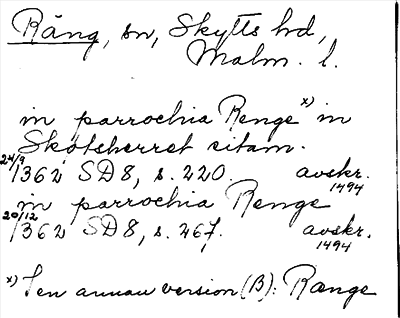 Räng, sn, Skytts hd,
Malm. l.
in parrochia Renge x) in
Skøtsherret sitam.
24/9 1362 SD 8, s. 220. avskr. 1494
in parrochia Renge
20/12 1362 SD 8, s. 267. avskr. 1494
x) I en annan version (B): Range